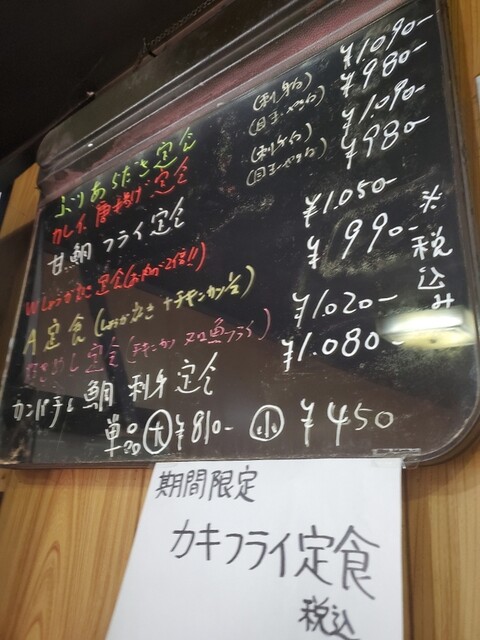 ぶりあらだき定食 (刺身付) ¥1.090-
(目玉・やっこ付) ¥980-
カレイ唐揚げ定食 (刺身付) ¥1.090-
(目玉・やっこ付) ¥980-
甘鯛フライ定食
Wしょうが焼き定食(お肉が2倍!!) ¥1.050-
A定食(しょうが焼き+チキンカツ) ¥990-
定食(チキンカツ又は魚フライ) ¥1.020-
カンパチと鯛刺身定食 ¥1.080-
単品 大 ¥810- 小 ¥450
※税込み
期間限定
カキフライ定食
税込